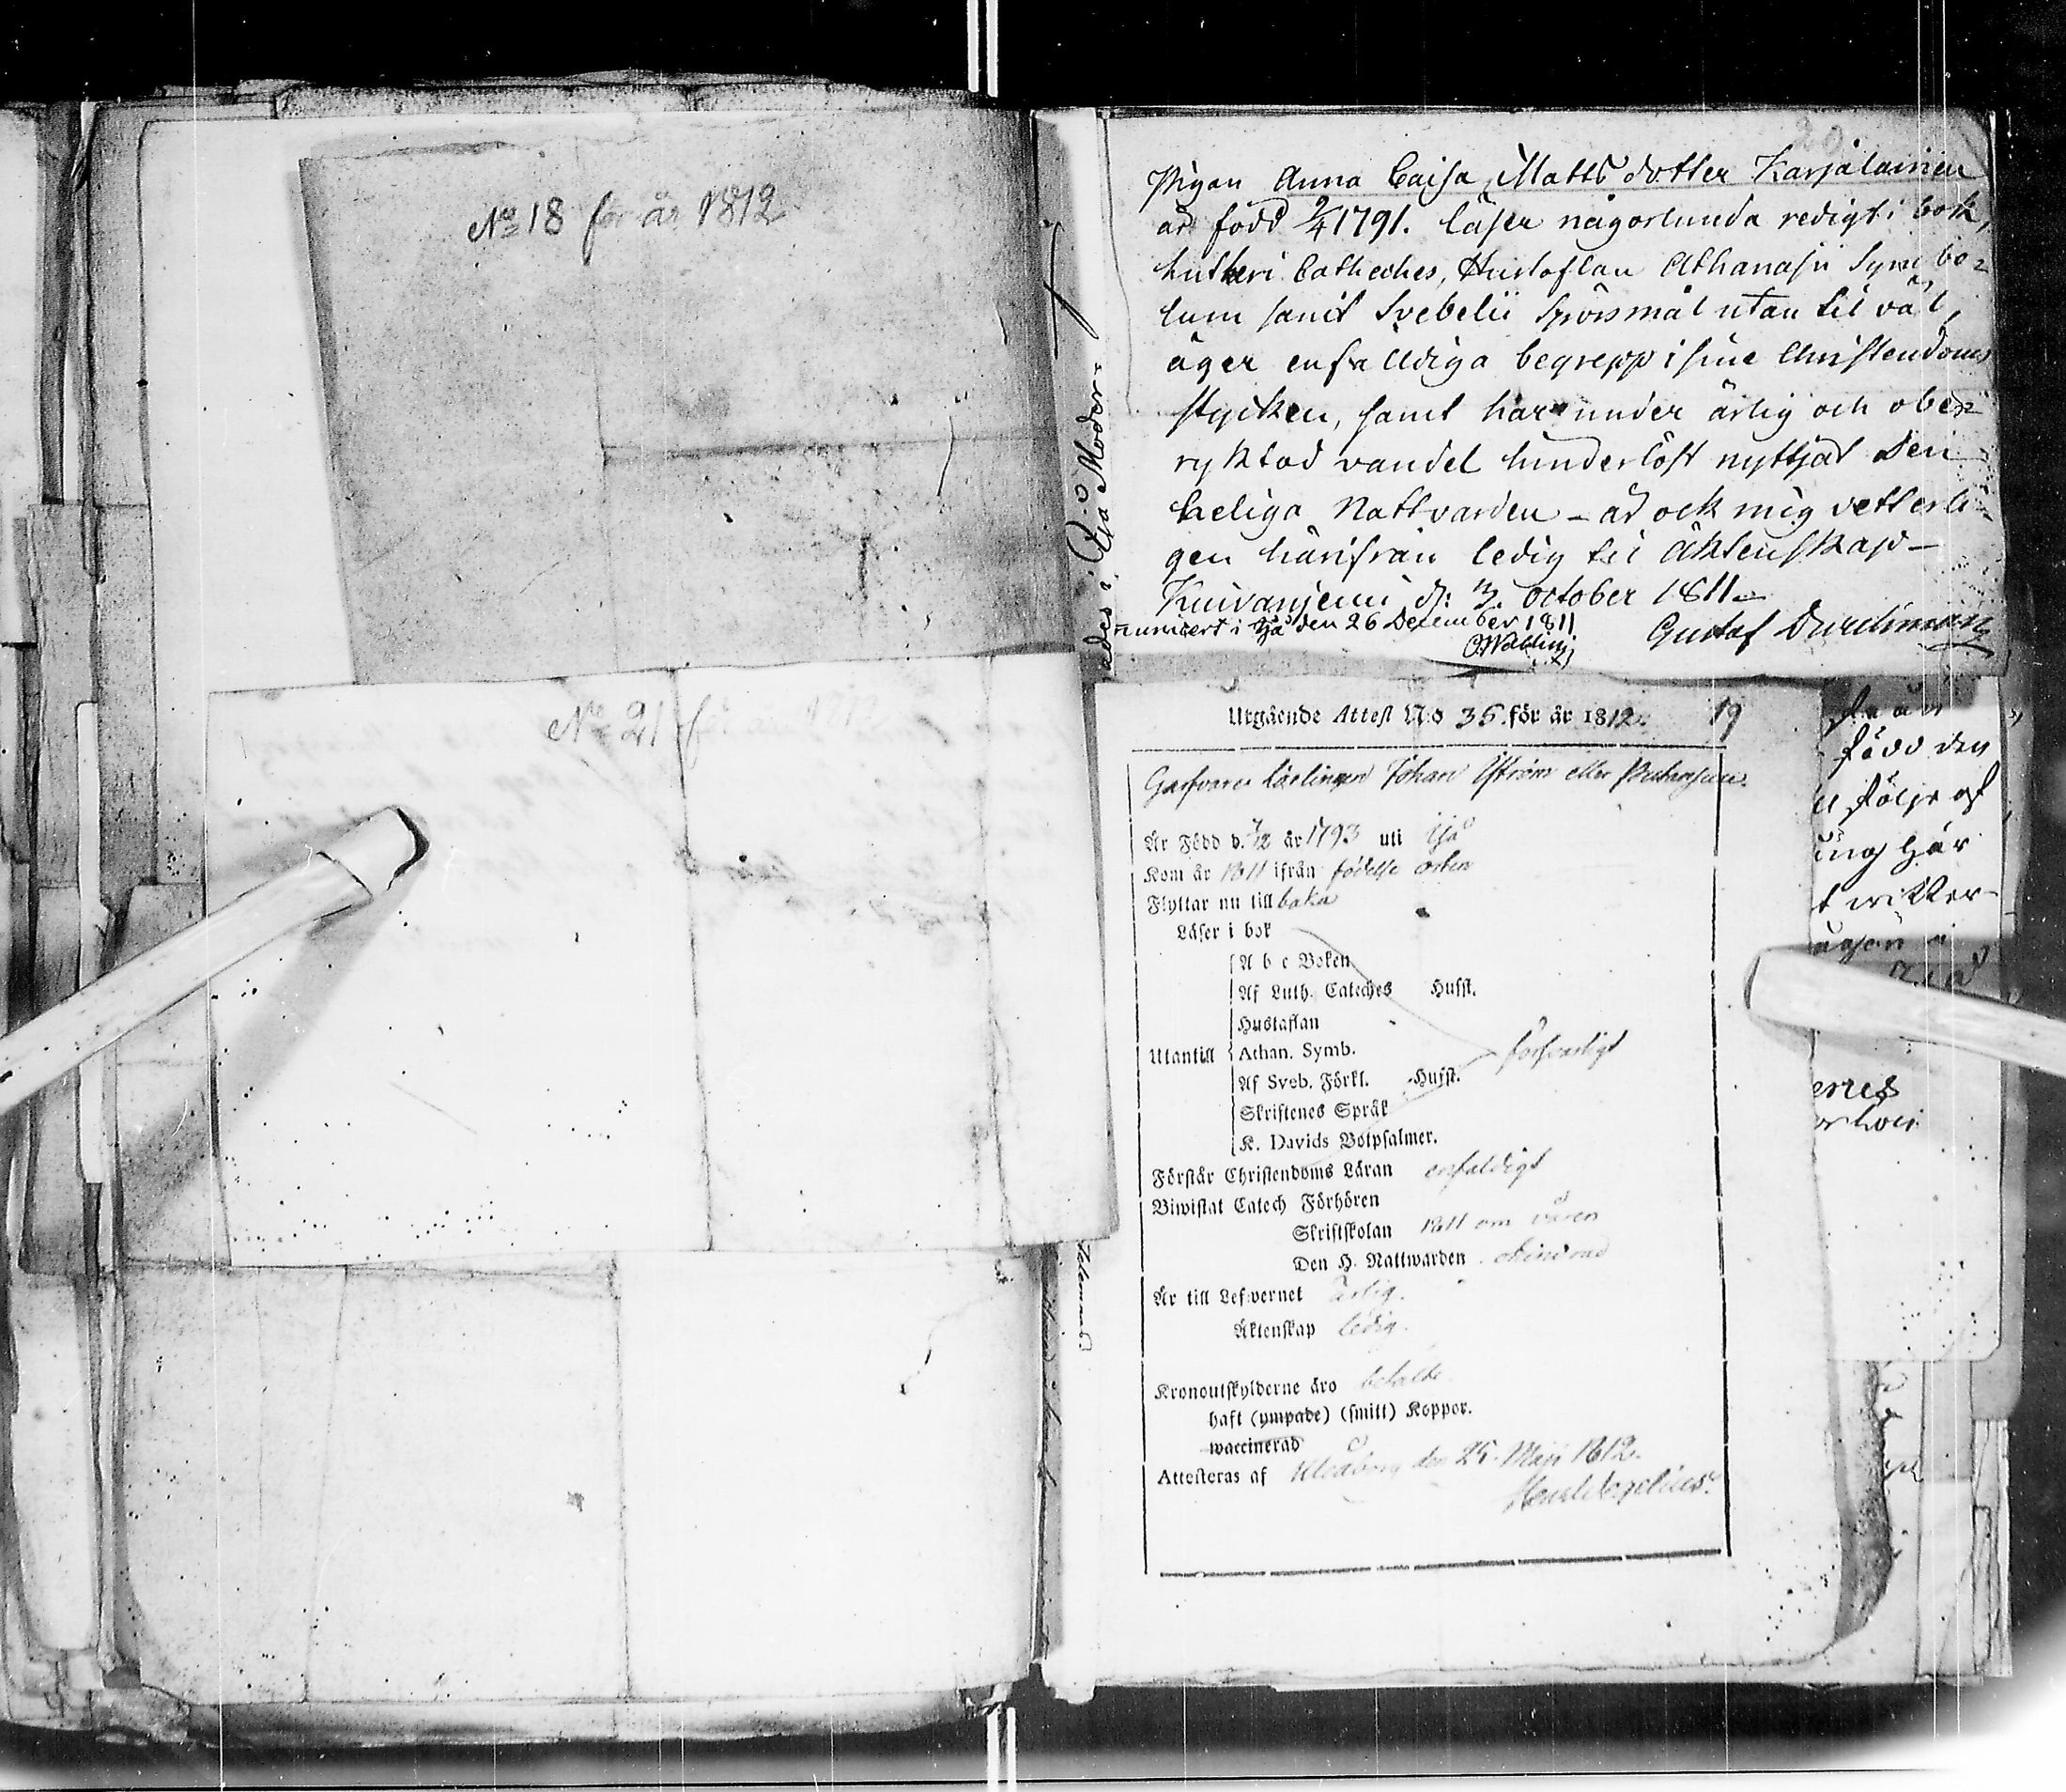 No 18 för år 1812
No 21 för år
20
Pigan Anna Caisa Matts dotter Karjalainen
är född 9/4 1791. läser någorlunda redigt i bok,
Lutheri Catheches, Hustaflan Athanasii Symbo-
lum samt Svebelii Spörsmål utan til väl,
äger enfalldiga begrepp i sine Christendoms
stycken, samt har under ärlig och obe-
ryktad vandel hinderlöst nyttjat Den
heliga Nattvarden – är ock mig vetterli-
gen härifrån ledig til Äktenskap –
Kuivaniemi d: 3. October 1811
den 26 December 1811
Gustaf
i Ijå Moder-
Utgående Attest N:o 36. för år 1812. 19
Garfvare Lärlingen Johan Ström eller
Är Född d. 7/2 år 1793 uti Ijå
Kom år 1811 ifrån födelse orten
Flyttar nu till baka
Läser i bok
A b c Boken
Af Luth. Cateches Hufst.
Hustaflan
Utantill Athan. Symb. försvarligt
Af Sveb. Förkl. Hufst.
Skriftenes Språk
K. Davids Botpsalmer.
Förstår Christendoms Läran enfaldigt
Biwistat Catech Förhören
Skriftskolan 1811 om våren
Den H. Nattwarden
Är till Lefvernet ärlig.
Äktenskap ledig.
Kronoutskylderne äro betalde
haft (ympade) (smitt) Koppor.
waccinerad
Attesteras af Uleåborg den 25 Maji 1812.
född den
följe af
här